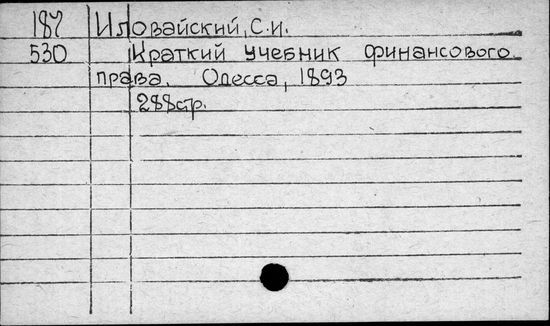 187 Иловайский, С.И.
530 Краткий учебник финансового
права. Одесса, 1893
288стр.